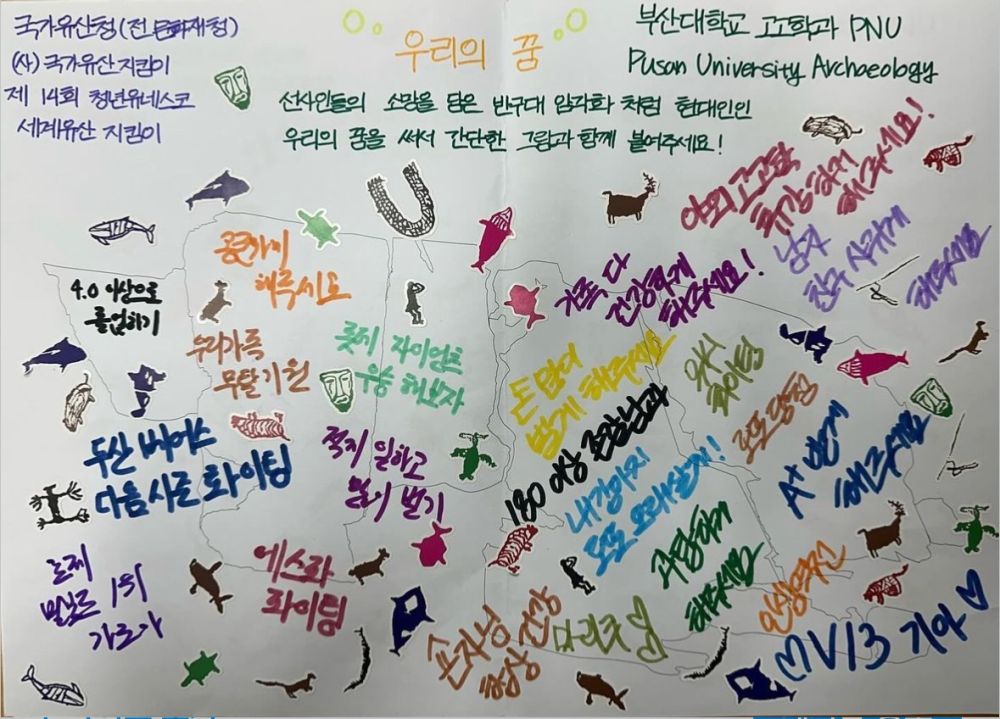 국가유산청(전 문화재청)
(사) 국가유산지킴이
제 14회 청년유네스코
세계유산 지킴이
우리의 꿈
부산대학교 고고학과 PNU
Pusan University Archaeology
선사인들의 소망을 담은 반구대 암각화 처럼 현대인인
우리의 꿈을 써서 간단한 그림과 함께 붙여주세요!
야외고고학
휴강하게
해주세요!
남자
친구 사귀게
해주세요
가족 다
건강하게
해주세요!
4.0 이상으로
졸업하기
해주시요
우리가족
무탈기원
롯데 자이언츠
우승 해보자
돈 많이
벌게 해주세요
화이팅
로또 당첨
A+
해주세요
두산 베어스
다음시즌 화이팅
적게 일하고
많이 벌기
180 이상 존잘남과
내 강아지
오래 살자!
해주세요
인생역전
1위
가보자
에스파
화이팅
건강
V13 기아